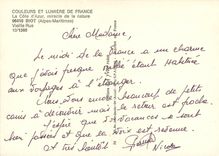 COULEURS ET LUMIÈRE DE FRANCE
La Côte d'Azur, miracle de la nature
06410 BIOT (Alpes-Maritimes)
Vieille Rue
Chère Madame,
Le midi de la France a un charme
que j'étais presque étant habituée
aux voyages à l'étranger.
Nous avons beaucoup de petits
coins à découvrir mais le retour est proche.
J'espère que vos vacances se sont
bien passées et que la voix est revenue.
Et très bientôt